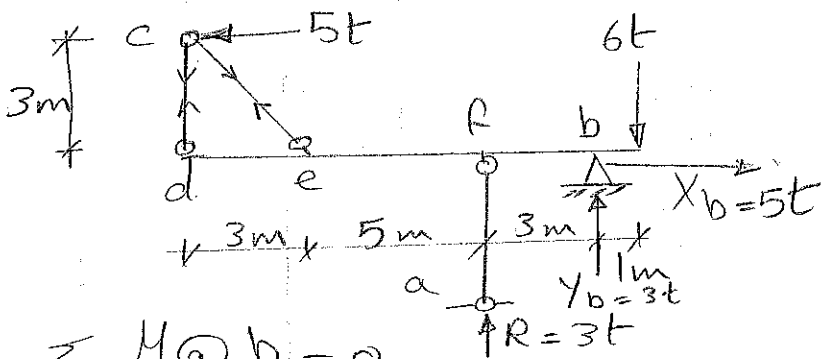 c 5t 6t
3m
f b
d e X_b=5t
3m 5m 3m 1m
a Y_b=3t
R=3t
Σ M@ b = 0